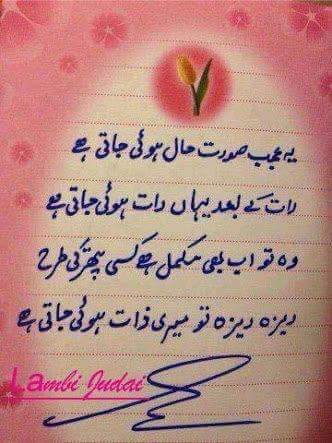 یہ عجب صورت حال ہوئی جاتی ہے
رات کے بعد یہاں رات ہوئی جاتی ہے
وہ تو اب بھی مکمل ہے کسی پتھر کی طرح
ریزہ ریزہ تو میری ذات ہوئی جاتی ہے
Lambi Judai